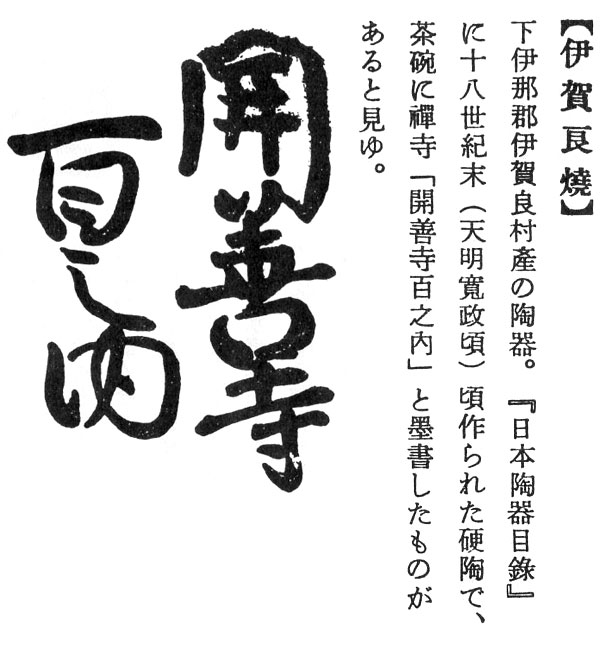 【伊賀良燒】
下伊那郡伊賀良村產の陶器。『日本陶器目錄』
に十八世紀末（天明寬政頃）頃作られた硬陶で、
茶碗に禪寺「開善寺百之內」と墨書したものが
あると見ゆ。
開善寺
百之内